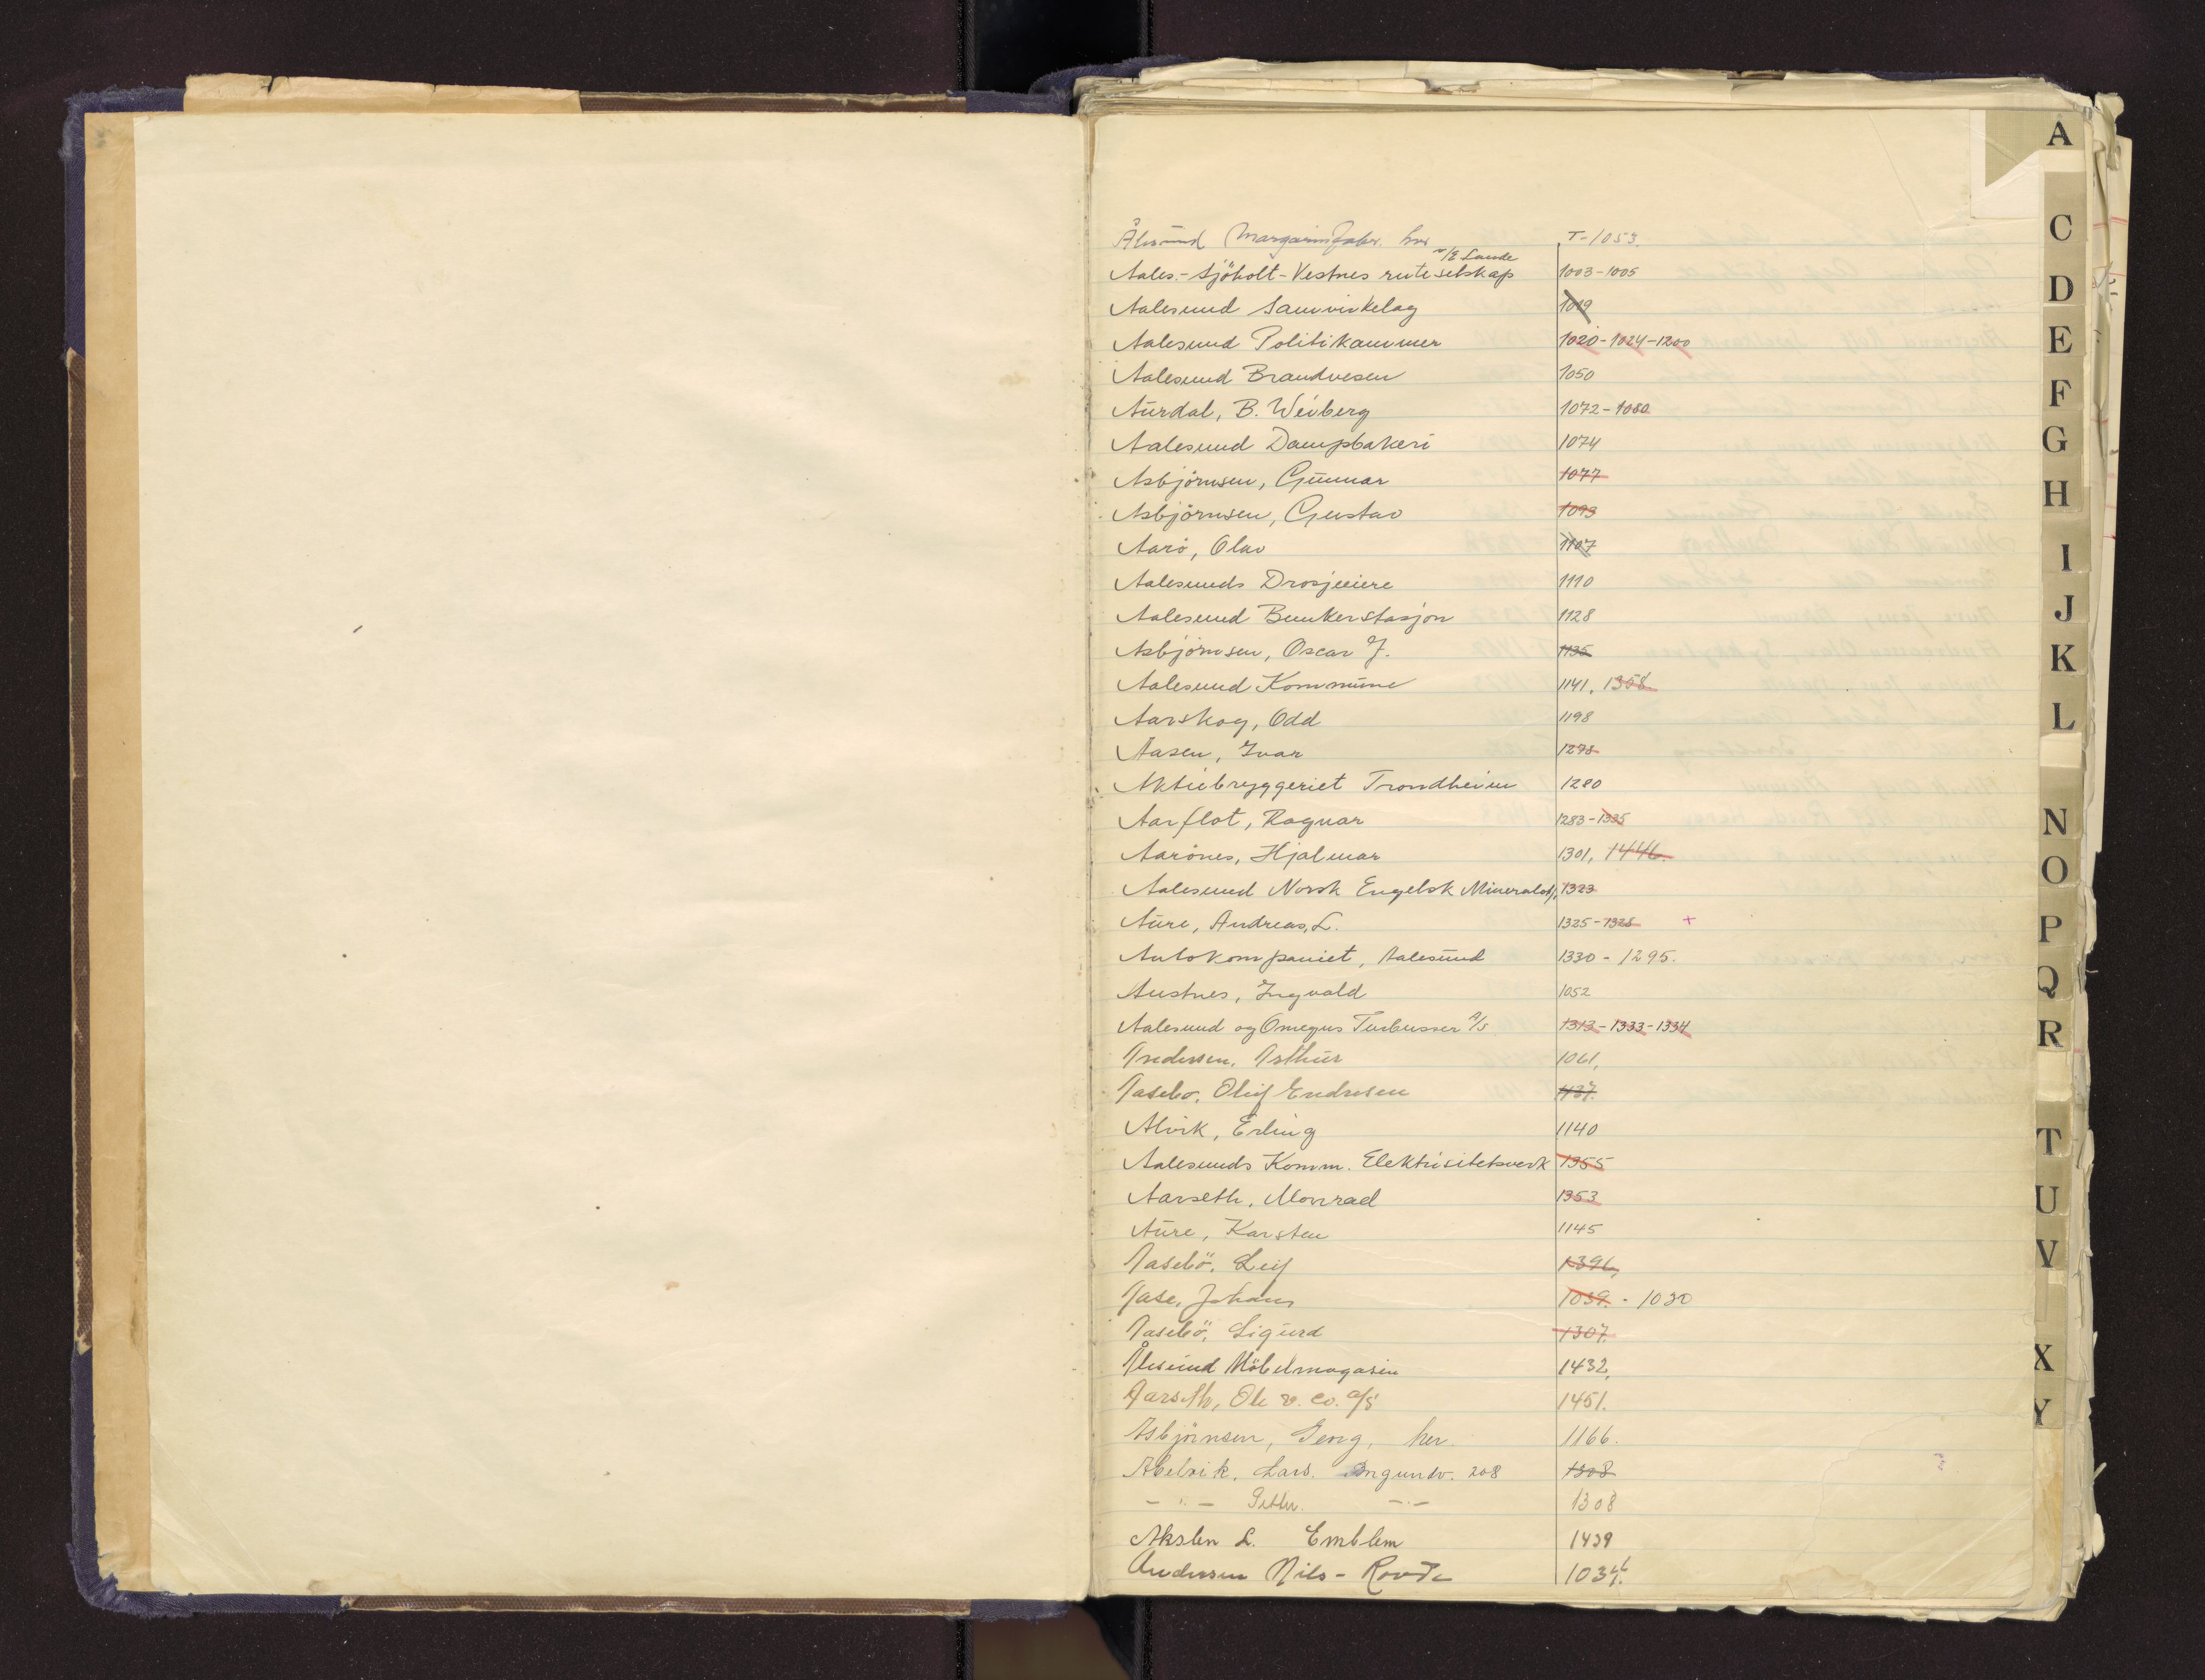 Ålesund Margarinfabr. her T-1053.
v/E Lande
Aales.-Sjöholt-Vestnes ruteselskap 1003-1005
Aalesund Samvirkelag 1019
Aalesund Politikammer 1020-1024-1200
Aalesund Brandvesen 1050
Aurdal, B. Weiberg 1072-1080
Aalesund Dampbakeri 1074
Asbjörnsen, Gunnar 1077
Asbjörnsen, Gustav 1093
Aarö, Olav 1107
Aalesunds Drosjeeiere 1110
Aalesund Bunkerstasjon 1128
Asbjörnsen, Oscar J. 1135
Aalesund Kommune 1141, 1358
Aarskog, Odd 1198
Aasen, Ivar 1278
Aktiebryggeriet Trondheim 1280
Aarflot, Ragnar 1283-1335
Aarönes, Hjalmar 1301, 1446.
Aalesund Norsk Engelsk Mineralolj. 1323
Aure, Andreas, L. 1325-1328 +
Autokompaniet, Aalesund 1330-1295.
Austnes, Ingvald 1052
Aalesund og Omegns Turbusser A/S 1313-1333-1334
Andersen, Arthur 1061,
Aasebø, Oluf Endresen 1137.
Alvik, Erling 1140
Aalesunds Komm. Elektrisitetsverk 1355
Aarseth, Monrad 1353
Aure, Karsten 1145
Aasebö, Leif 1396,
Aase, Johans 1039. - 1030
Aasebö, Sigurd 1307.
Ålesund Möbelmagasin 1432,
Aarseth, Ole & Co. a/s 1451.
Asbjörnsen, Georg, her. 1166.
Abelvik, Lars. 208 1308
- " - - " - 1308
Akslen L. Emblem 1439
Andersen Nils - 1034.
A
C
D
E
F
G
H
I
J
K
L
N
O
P
Q
R
T
U
V
X
Y